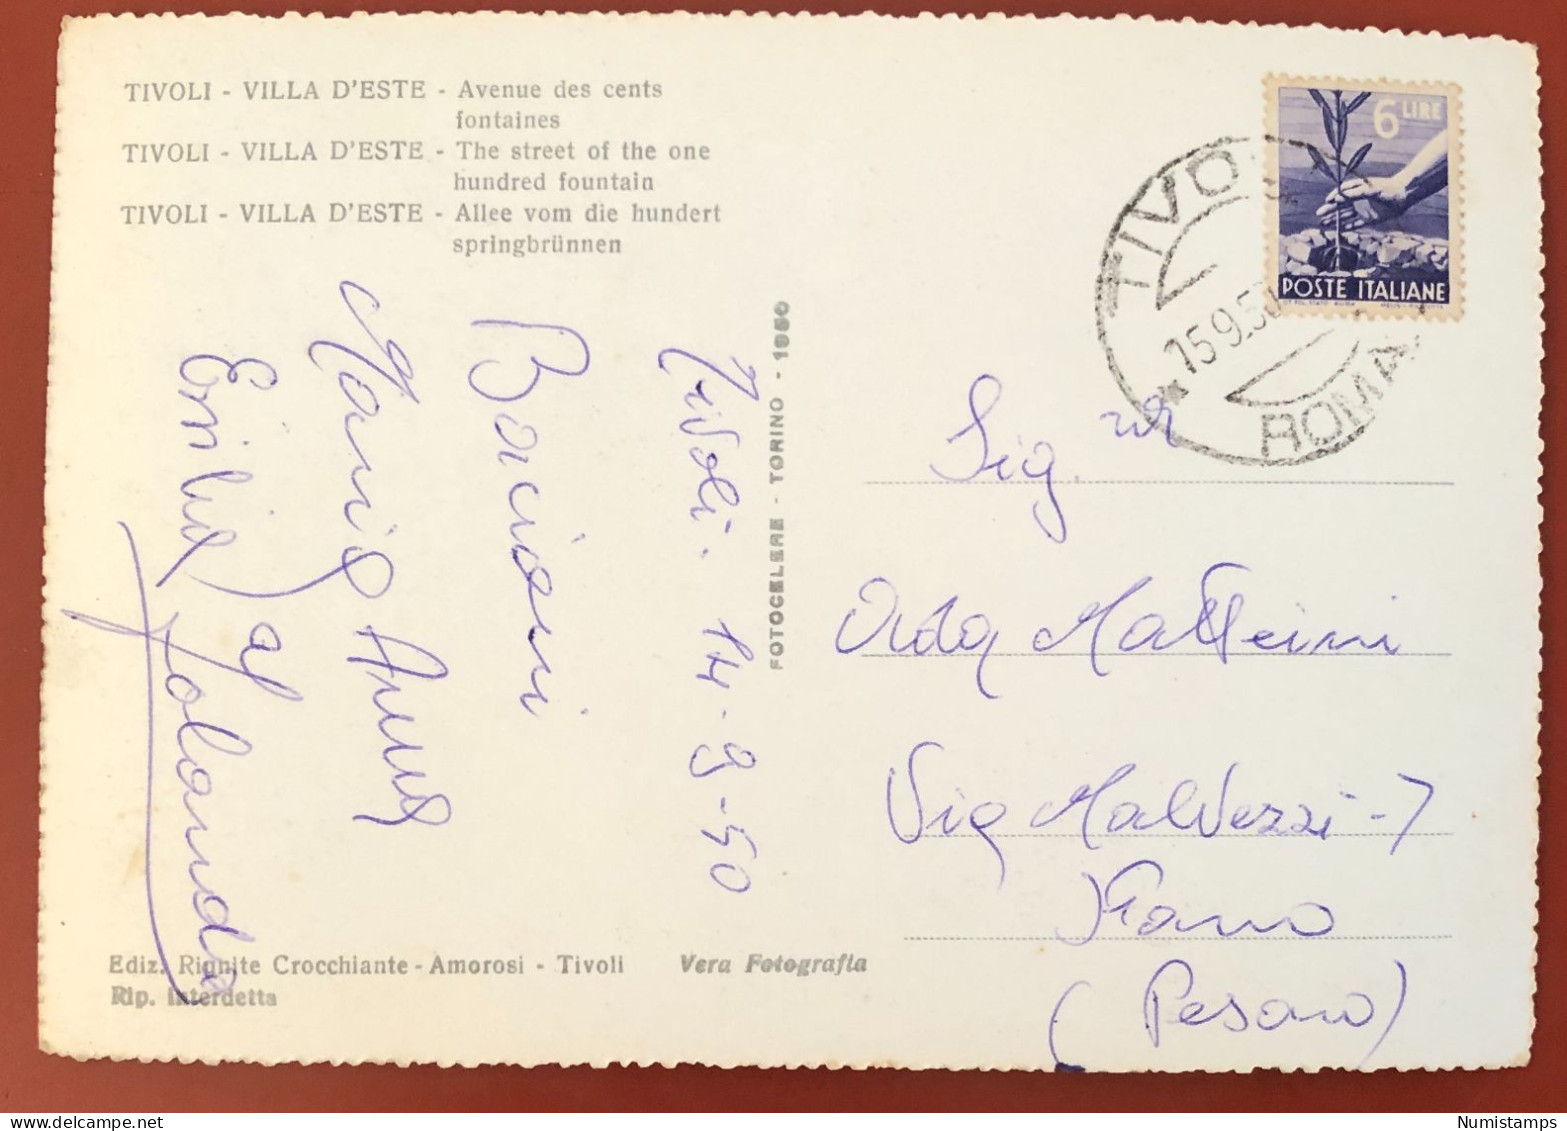 TIVOLI - VILLA D'ESTE - Avenue des cents
fontaines
TIVOLI - VILLA D'ESTE - The street of the one
hundred fountain
TIVOLI - VILLA D'ESTE - Allee vom die hundert
springbrünnen
6 LIRE
POSTE ITALIANE
TIVOLI
15.9.50
ROMA
FOTOCELERE - TORINO - 1950
Tivoli. 14-9-50
Bacioni
Maria Anna
Emilia e Jolanda
Sig.na
Alda Matteini
Via Malvezzi - 7
Fano
(Pesaro)
Ediz. Riunite Crocchiante - Amorosi - Tivoli Vera Fotografia
Rip. Interdetta
Numistamps